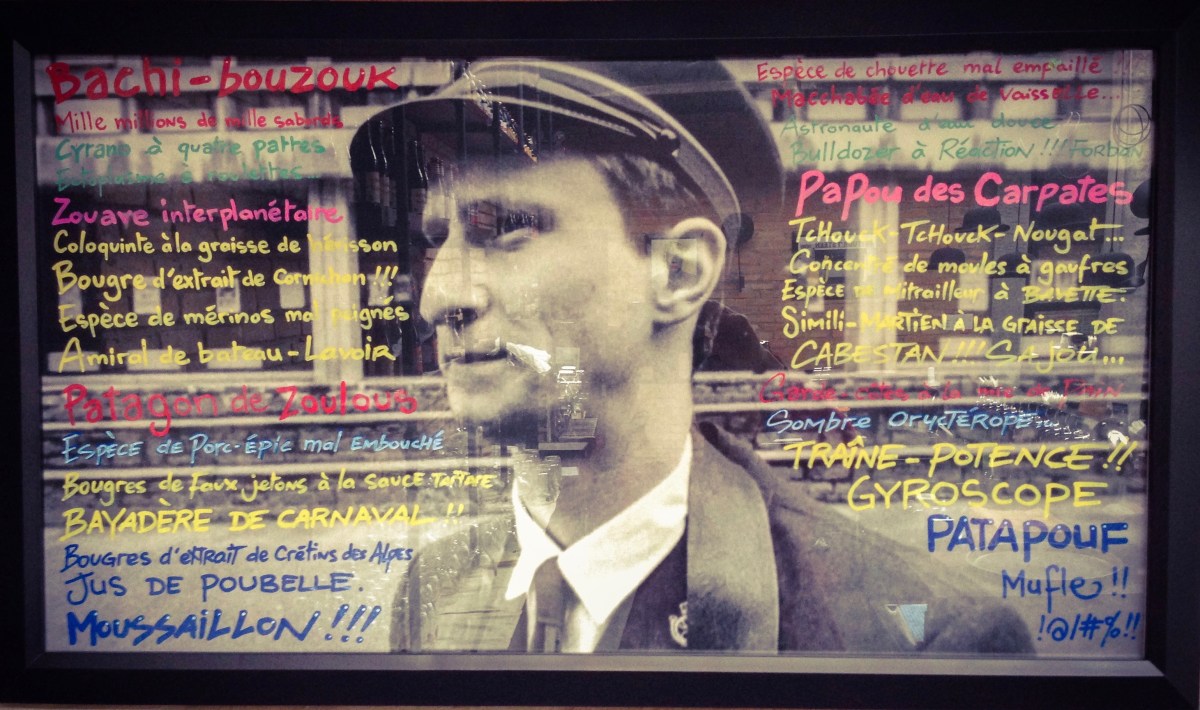 Bachi-bouzouk
Mille millions de mille sabords
Cyrano à quatre pattes
Ectoplasme à roulettes...
Zouave interplanétaire
Coloquinte à la graisse de hérisson
Bougre d'extrait de Cornichon !!!
Espèce de mérinos mal peignés
Amiral de bateau-Lavoir
Patagon de Zoulous
Espèce de Porc-épic mal embouché
Bougres de faux jetons à la sauce TARTARE
BAYADÈRE DE CARNAVAL !!
Bougres d'extrait de Crétins des Alpes
JUS DE POUBELLE.
MOUSSAILLON !!!
Espèce de chouette mal empaillé
Macchabée d'eau de vaisselle...
Astronaute d'eau douce !!
Bulldozer à Réaction !!! FORBAN
PaPou des Carpates
TcHouck-TcHouck-Nougat...
Concentré de moules à gaufres
Espèce de Mitrailleur à BAVETTE.
Simili-MARTIEN À LA GRAISSE DE
CABESTAN !!! SAJOU...
Garde-côtes à la
Sombre ORYCTÉROPE
TRAÎNE-POTENCE !!
GYROSCOPE
PATAPOUF
Mufle !!
!@/#%!!